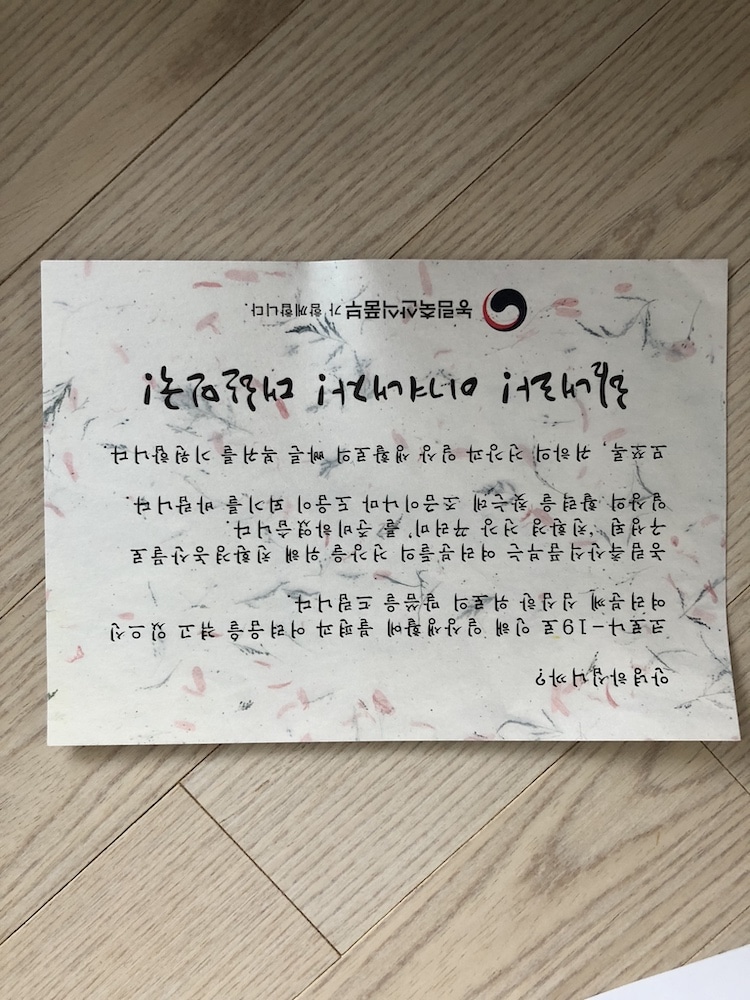 안녕하십니까?
코로나-19로 인해 일상생활에 불편과 어려움을 겪고 있으신
여러분께 심심한 위로의 말씀을 드립니다.
농림축산식품부는 여러분들의 건강을 위해 친환경농산물로
구성된 '친환경 건강 꾸러미'를 준비하였습니다.
일상의 활력을 찾는데 조금이나마 도움이 되기를 바랍니다.
모쪼록, 귀하의 건강과 일상 생활로의 빠른 복귀를 기원합니다.
힘내라! 이겨내자! 대한민국!
농림축산식품부가 함께합니다.